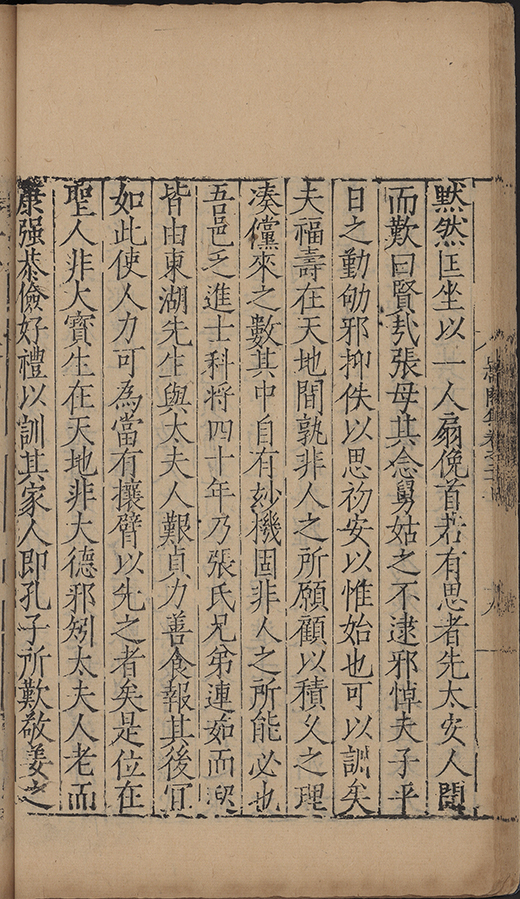 默然匡坐以一人扇俛首若有思者先太安人聞
而歎曰賢哉張母其念舅姑之不逮邪悼夫子平
日之勤劬邪抑佚以思初安以惟始也可以訓矣
夫福壽在天地間孰非人之所願顧以積久之理
湊儻來之數其中自有妙機固非人之所能必也
吾邑乏進士科將四十年乃張氏兄弟連茹而
皆由東湖先生與太夫人艱貞力善食報其後宜
如此使人力可為當有攘臂以先之者矣是位在
聖人非大寶生在天地非大德邪矧太夫人老而
康强恭儉好禮以訓其家人即孔子所歎敬姜之